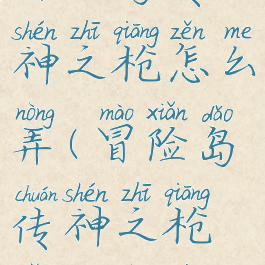 shén zhī qiāng zěn me
神之枪怎么
nòng mào xiǎn dǎo
弄(冒险岛
chuán shén zhī qiāng
传神之枪